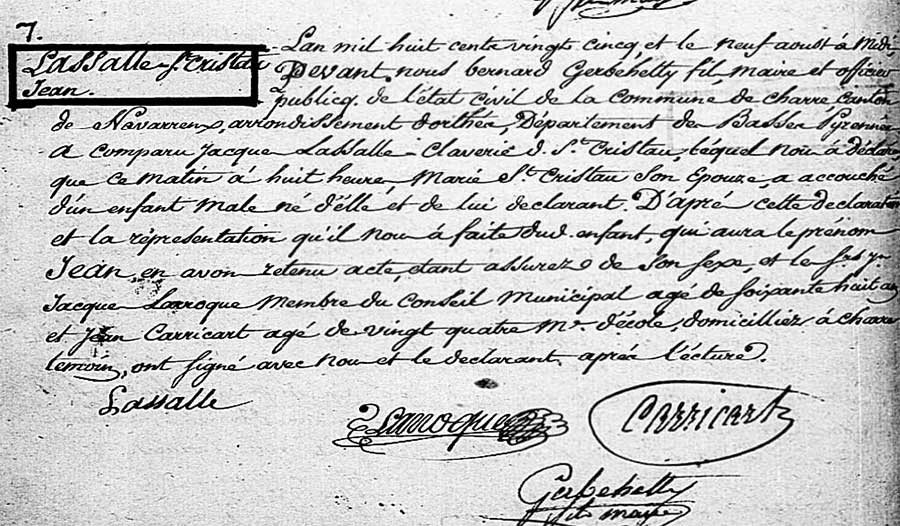 7.
Lassalle-St Cristau
Jean.
Lan mil huit cents vingt cincq, et le neuf aoust à Midi
Devant nous bernard Gerbehetty fils Maire et officier
publicq. de l'état civil de la Commune de charre Canton
de Navarrenx, arrondissement d'orthés, Département des Basses Pyrennées
a comparu Jacque Lassalle-Claverie d. St Cristau, lequel nous à déclaré
que ce matin à huit heure, Marie St Cristau son Epouze, a accouché
d'un enfant Male né d'elle et de lui declarant. D'aprés cette declaration
et la réprésentation qu'il nous à faite dud. enfant, qui aura le prénom
Jean, en avons retenu acte, étant assurez de son sexe, et les srs
Jacque Larroque Membre du Conseil Municipal agé de soixante huit ans
et Jean Carricart agé de vingt quatre Me. d'école, domicilliez à charre
temoins, ont signé avec nous et le declarant, aprés lécture.
Lassalle
Larroque
Carricart
Gerbehetty
fils maire